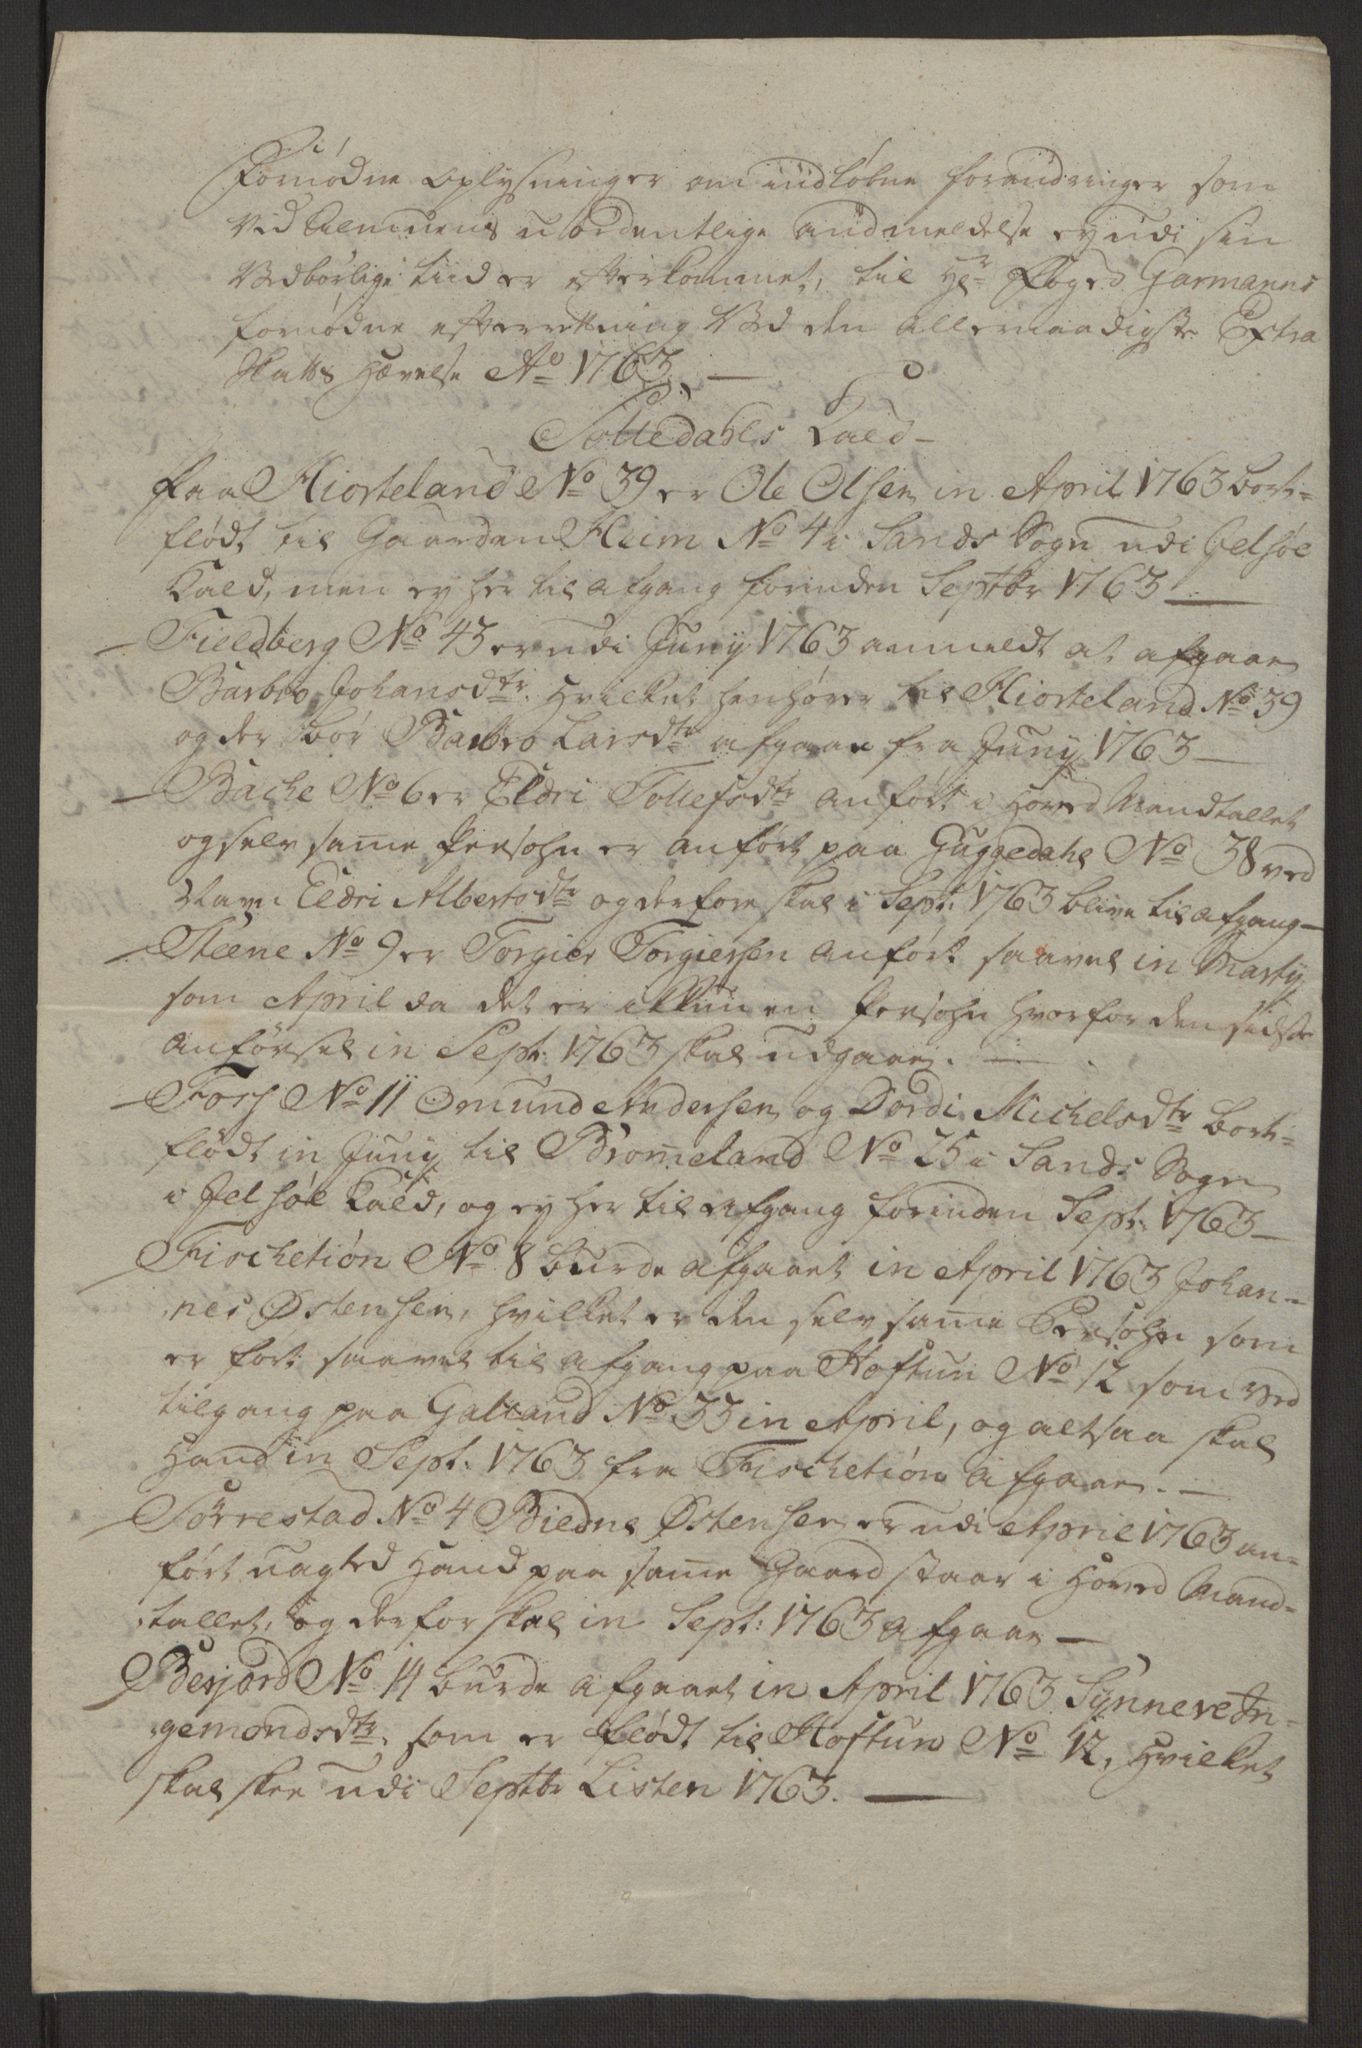 Fornødne Oplysninger om indløbne forandringer som
Ved Almuens uordentlige Andmeldelse ey udi sin
Vedbørlige tiid er efterkommet, til Hr Foged Garmanns
fornødne efterretning Ved den allernaadigste Extra
Skatts Hævelse Ao 1763. —
Sollédahls Kald —
Paa Hiorteland No 39 er Ole Olsen in April 1763 bort=
flødt til Gaarden Hiim No 4 i Sands Sogn udi Jelsøe
Kald, men ey her til afgang forinden Septbr 1763 —
— Fieldberg No 43 er udi Juny 1763 anmeldt at afgaae
Barbro Johansdtr. Hvilket henhører til Hiorteland No 39
og der bør Barbro Larsdtr afgaae fra Juny 1763 —
— Bache No 6 er Eldri Tollefsdtr anført i Hoved Mandtallet
og selv same Persohn er anført paa Guggedahl No 38 ved
Navn Eldri Albertsdtr og derfore skal i Sept: 1763 blive til afgang —
— Steene No 9 er Torgier Torgiersen anført saavel in Marty
som April da det er ikkun en Persohn hvorfor den sidste
anførsel in Sept: 1763 skal udgaae. —
— Fors No 11 Omund Andersen og Dordi Michelsdtr bort=
flødt in Juny til Bromeland No 25 i Sands Sogn
i Jelsøe Kald, og ey her til afgang forinden Sept: 1763 —
— Fischetiøn No 8 burde afgaaet in April 1763 Johan=
nes Østensen, hvilket er den selv same Persohn som
er ført saavel til afgang paa Hoftun No 12 som ved
tilgang paa Galtand No 33 in April, og altsaa skal
Hand in Sept: 1763 fra Fischetiøn afgaae. —
— Sørrestad No 4 Biedne Østensen er udi April 1763 an=
ført uagted Hand paa same Gaard staar i Hoved Mand=
tallet, og derfor skal in Sept: 1763 afgaae —
— Berjord No 11 burde afgaaet in April 1763 Synneve In=
gemondsdtr. som er flødt til Hoftun No 12, Hvilket
skal skee udi Septbr Listen 1763. —